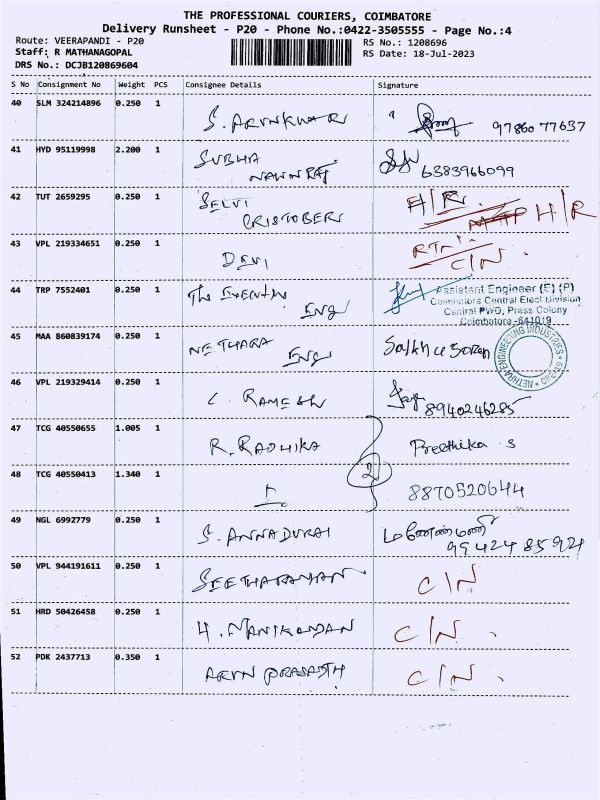 THE PROFESSIONAL COURIERS, COIMBATORE
Delivery Runsheet - P20 - Phone No.:0422-3505555 - Page No.:4
Route: VEERAPANDI - P20
RS No.: 1208696
Staff: R MATHANAGOPAL
RS Date: 18-Jul-2023
DRS No.: DCJB120869604
S No Consignment No Weight PCS Consignee Details Signature
40 SLM 324214896 0.250 1 S. ARUNKUMAR 97860 77637
41 HYD 95119998 2.200 1 SUBHA
NAVINRAJ 6383966099
42 TUT 2659295 0.250 1 SELVI
CRISTOBER H/R
43 VPL 219334651 0.250 1 DEVI RTN
C/N.
44 TRP 7552401 0.250 1 The EXEENTIV
ENG
Assistant Engineer (E) (P)
Coimbatore Central Elect Division
Central PWD, Press Colony
Coimbatore -641019
45 MAA 860839174 0.250 1 NETHARA
ENG
NETHRA ENGINEERING INDUSTRIES
46 VPL 219329414 0.250 1 C. RAMESH 8940246285
47 TCG 40550655 1.005 1 R. RADHIKA 2 Preethika S
48 TCG 40550413 1.340 1 8870520644
49 NGL 6992779 0.250 1 S. ANNADURAI
99424 85921
50 VPL 944191611 0.250 1 SEETHARAMAN C/N
51 HRD 50426458 0.250 1 H. MANIKANDAN C/N.
52 PDK 2437713 0.350 1 ARUN PRASATH C/N.